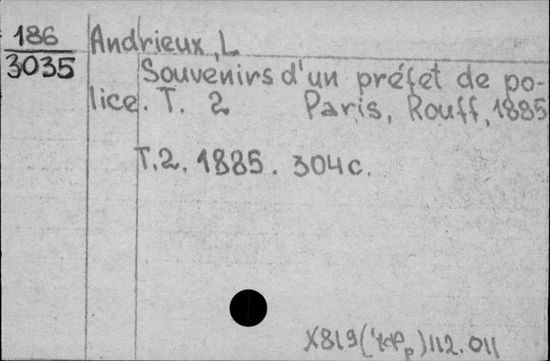 186
3035
Andrieux, L.
Souvenirs d'un préfet de po-
lice. T. 2 Paris, Rouff, 1885
T. 2. 1885. 304 с.
112.011